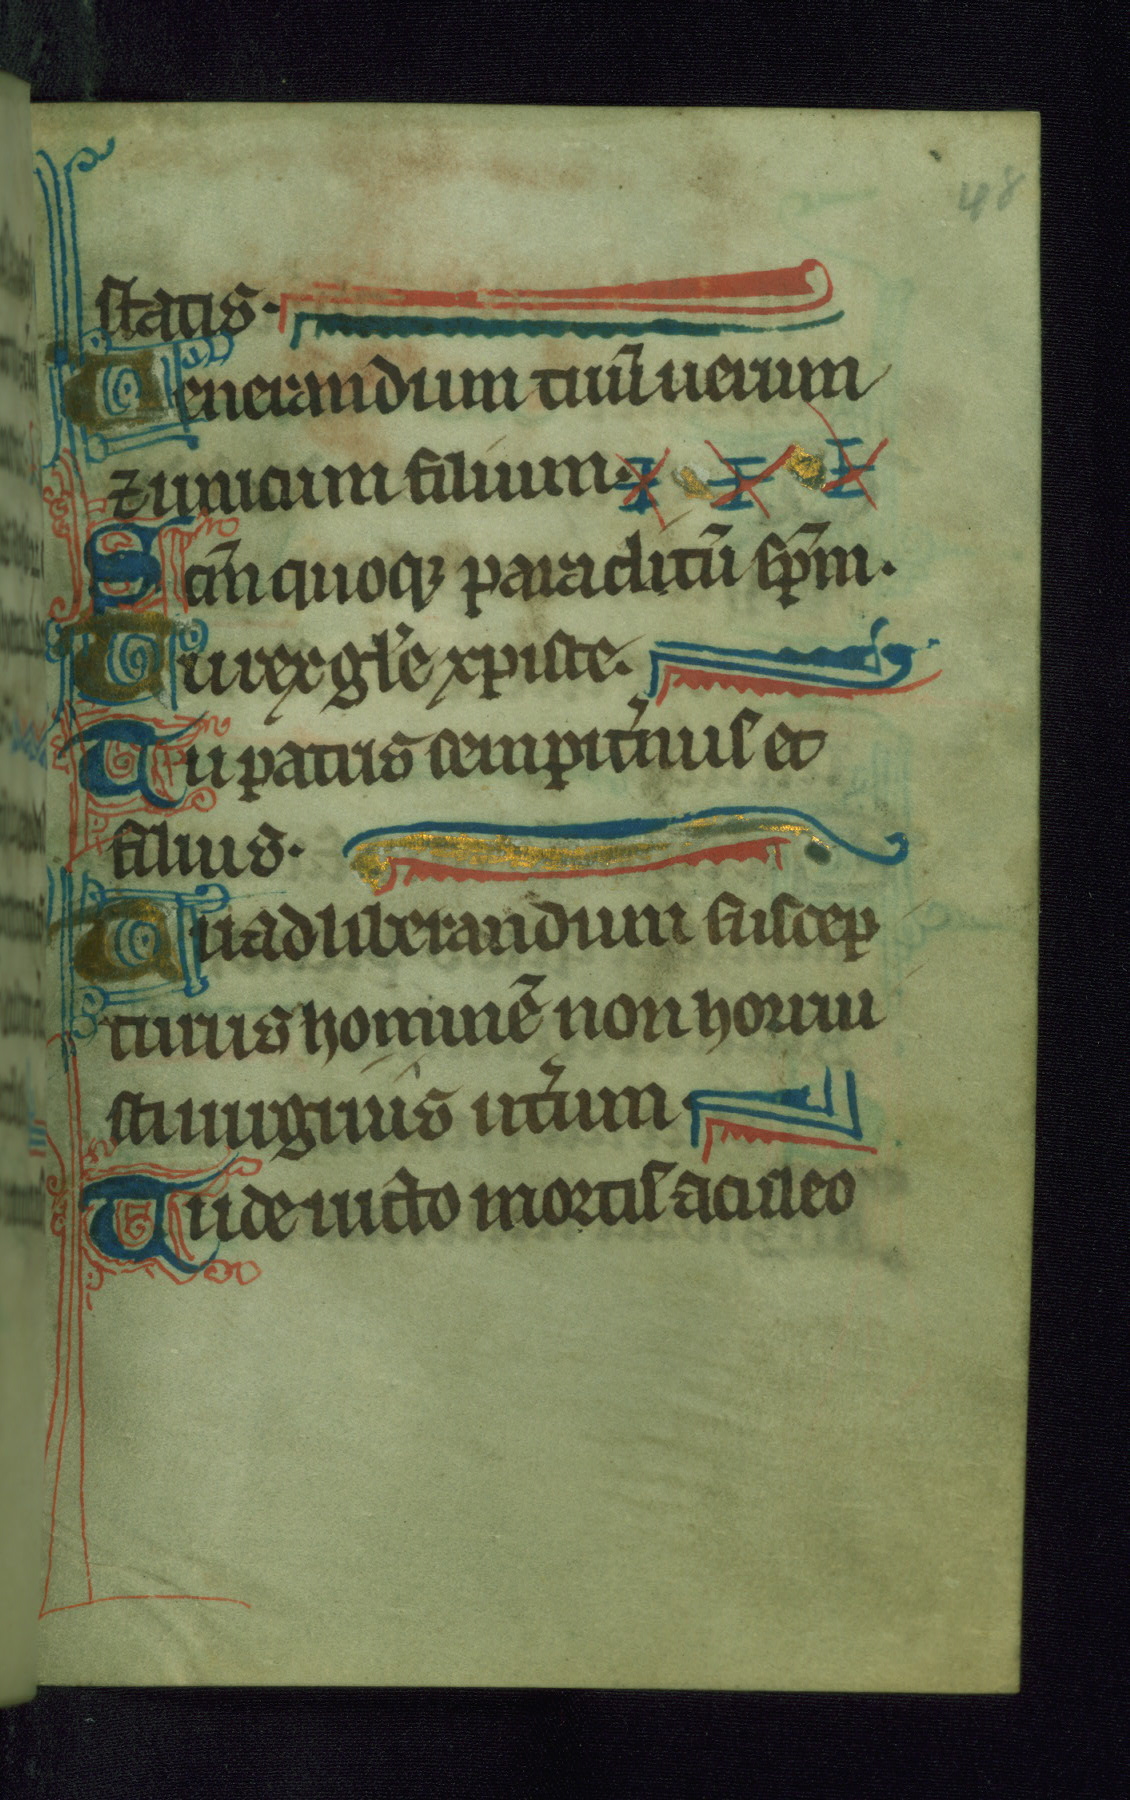 48
statis.
Uenerandum tuū uerum
⁊ unicum filium.
Scm̄ quoq₃ paraclitū sp̄m.
Tu rex gl̓e xp̓iste.
Tu patris sempit̓nus et
filius.
Tu ad liberandum suscep
turus hominē non horrui
sti uirginis ut̓um
Tu deuicto mortis aculeo